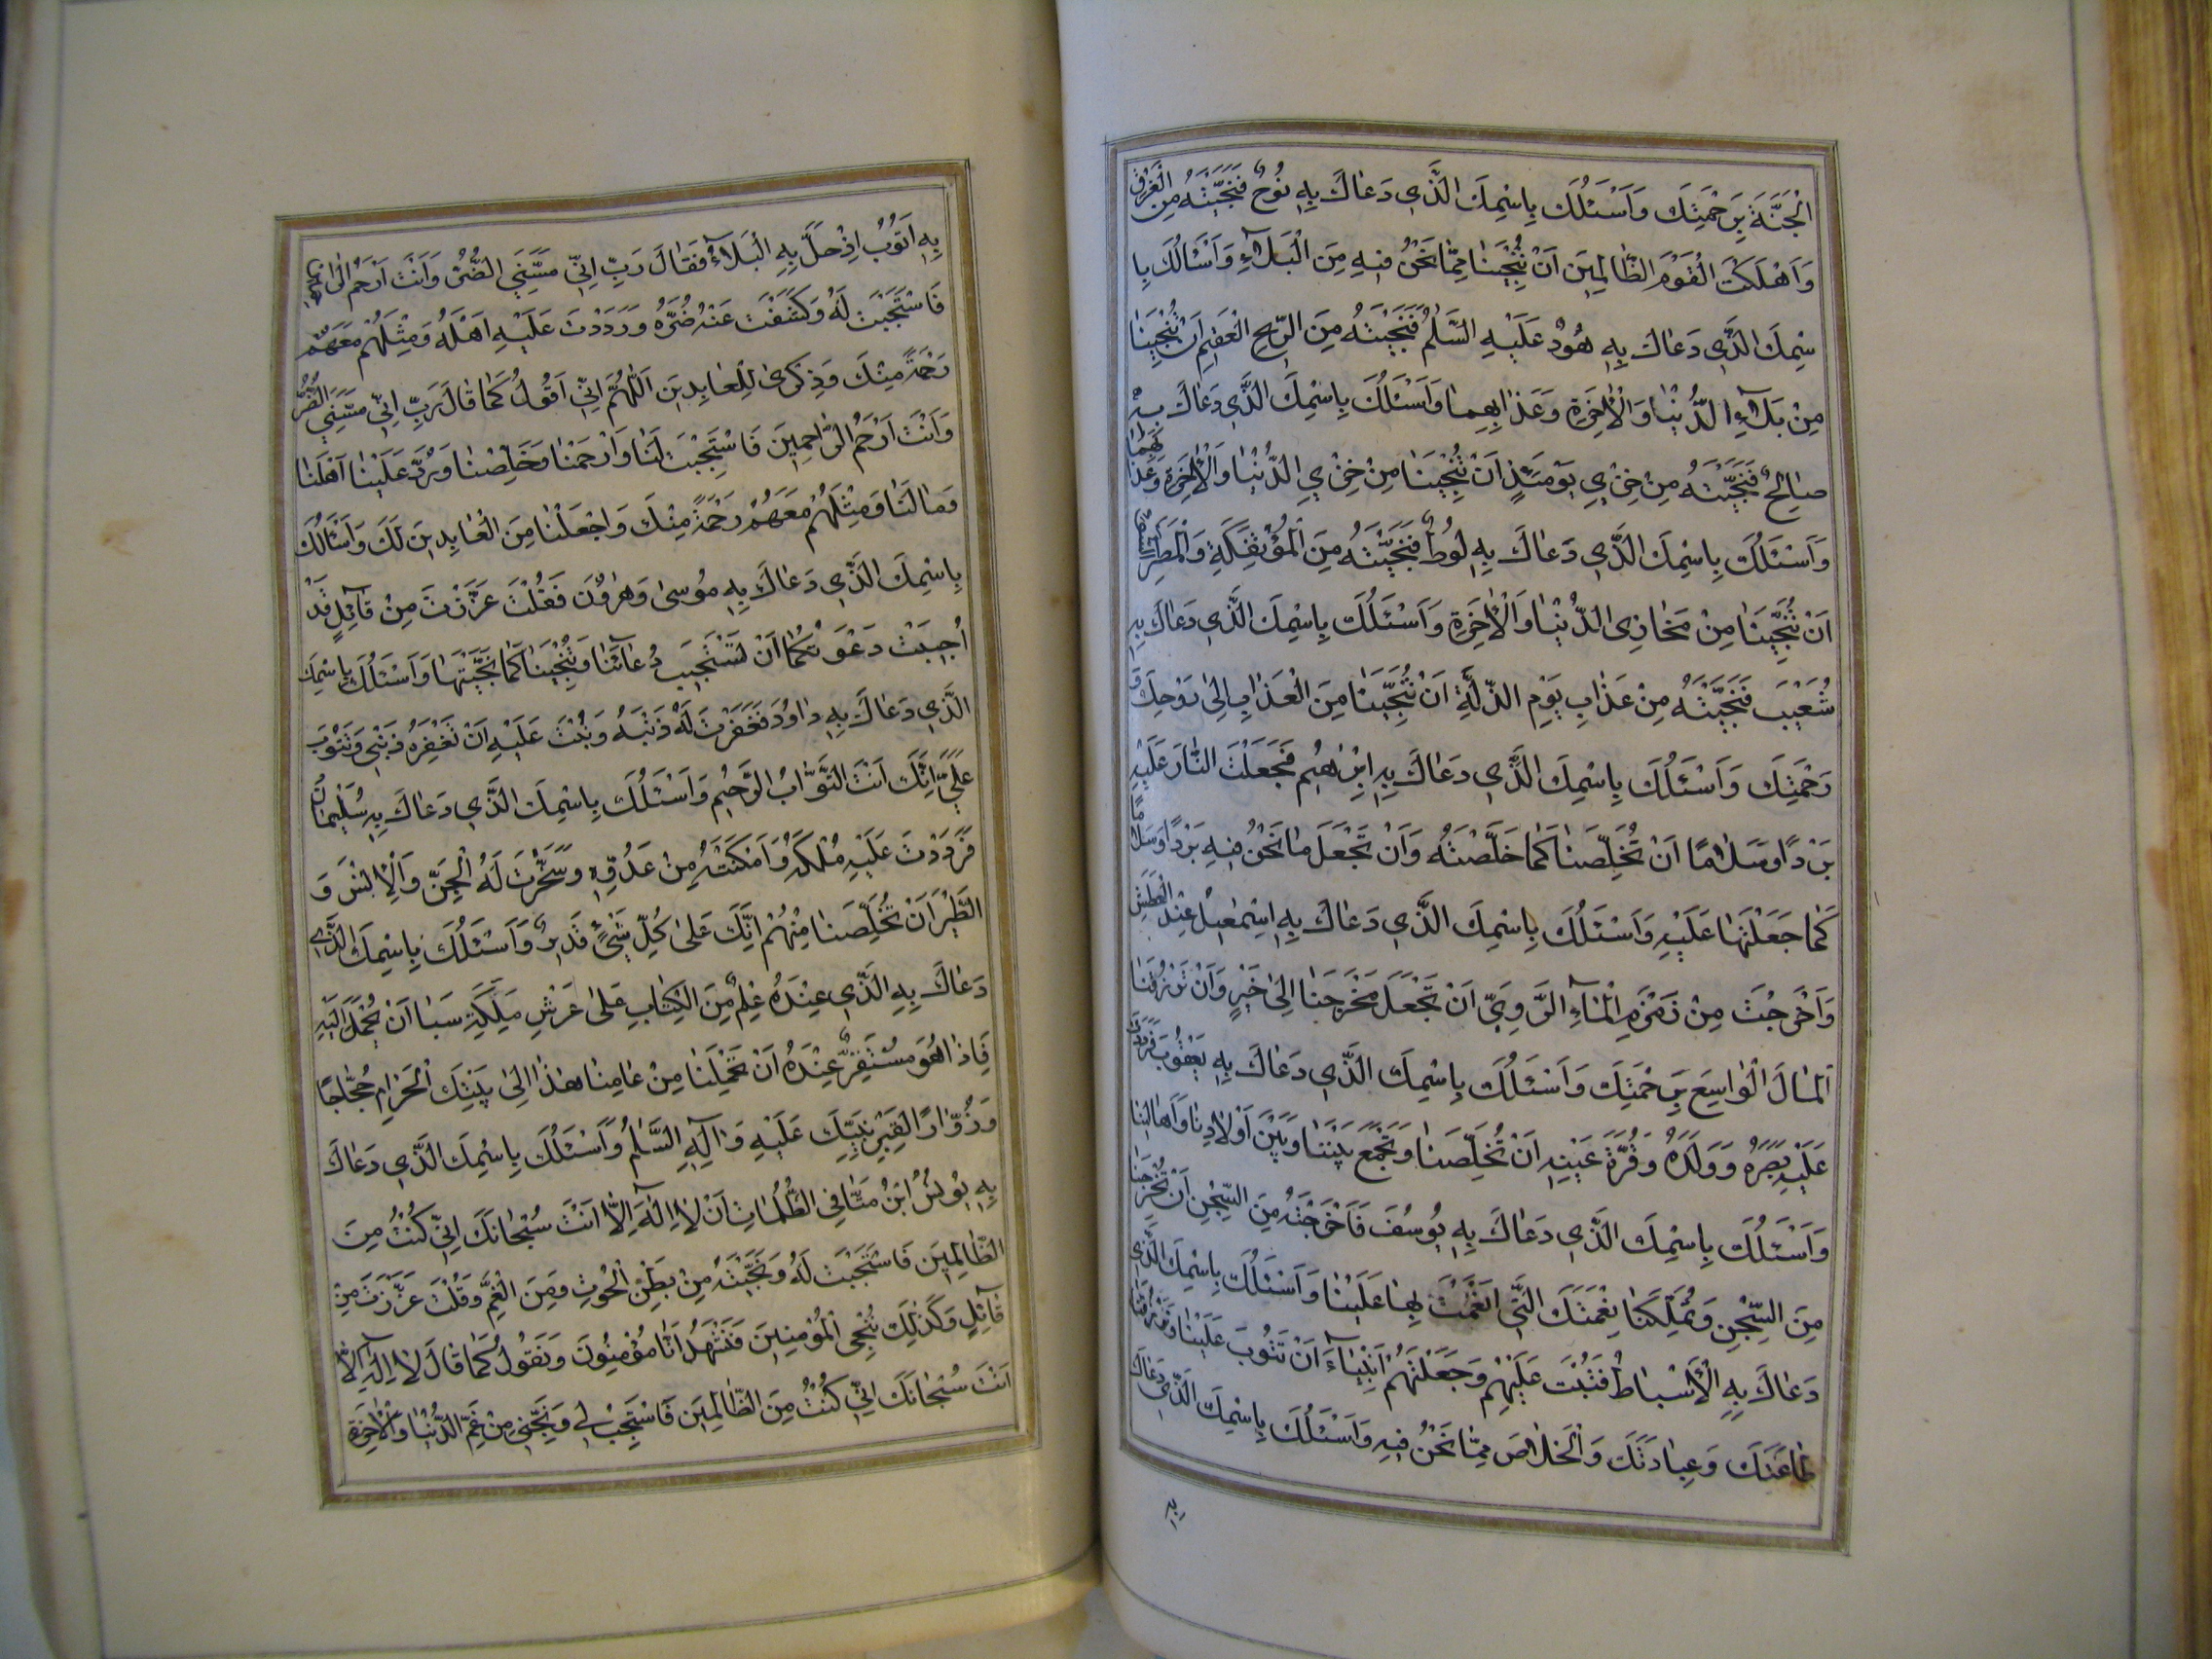 الْجَنَّةَ بِرَحْمَتِكَ وَاَسْئَلُكَ بِاسْمِكَ الَّذِي دَعَاكَ بِهِ نُوحٌ فَنَجَّيْتَهُ مِنَ الْغَرَقِ
وَاَهْلَكْتَ الْقَوْمَ الظَّالِمِينَ اَنْ تُنْجِيَنَا مِمَّا نَحْنُ فِيهِ مِنَ الْبَلَاءِ وَاَسْئَلُكَ بِا
سْمِكَ الَّذِي دَعَاكَ بِهِ هُودٌ عَلَيْهِ السَّلَمُ فَنَجَّيْتَهُ مِنَ الرِّيحِ الْعَقِيمِ اَنْ تُنْجِيَنَا
مِنْ بَلَاءِ الدُّنْيَا وَالْاٰخِرَةِ وَعَذَابِهِمَا وَاَسْئَلُكَ بِاسْمِكَ الَّذِي دَعَاكَ بِهِ
صَالِحٌ فَنَجَّيْتَهُ مِنْ خِزْيِ يَوْمَئِذٍ اَنْ تُنْجِيَنَا مِنْ خِزْيِ الدُّنْيَا وَالْاٰخِرَةِ وَعَذَابِهِمَا
وَاَسْئَلُكَ بِاسْمِكَ الَّذِي دَعَاكَ بِهِ لُوطٌ فَنَجَّيْتَهُ مِنَ الْمُؤْتَفِكَةِ وَالْمَطَرِ
اَنْ تُنَجِّيَنَا مِنْ مَخَازِى الدُّنْيَا وَالْاٰخِرَةِ وَاَسْئَلُكَ بِاسْمِكَ الَّذِي دَعَاكَ بِهِ
شُعَيْبٌ فَنَجَّيْتَهُ مِنْ عَذَابِ يَوْمِ الذِّلَّةِ اَنْ تُنَجِّيَنَا مِنَ الْعَذَابِ اِلَى رَوْحِكَ وَ
رَحْمَتِكَ وَاَسْئَلُكَ بِاسْمِكَ الَّذِي دَعَاكَ بِهِ اِبْرٰهِيمُ فَجَعَلْتَ النَّارَ عَلَيْهِ
بَرْدًا وَسَلَامًا اَنْ تُخَلِّصَنَا كَمَا خَلَّصْتَهُ وَاَنْ تَجْعَلَ مَا نَحْنُ فِيهِ بَرْدًا وَسَلَامًا
كَمَا جَعَلْتَهَا عَلَيْهِ وَاَسْئَلُكَ بِاسْمِكَ الَّذِي دَعَاكَ بِهِ اِسْمٰعِيلُ عِنْدَ الْعَطَشِ
وَاَخْرَجْتَ مِنْ زَمْزَمِ الْمَاءَ الرَّوِيَّ اَنْ تَجْعَلَ مَخْرَجَنَا اِلَى خَيْرٍ وَاَنْ تَرْزُقَنَا
الْمَالَ الْوَاسِعَ بِرَحْمَتِكَ وَاَسْئَلُكَ بِاسْمِكَ الَّذِي دَعَاكَ بِهِ يَعْقُوبُ فَرَدَدْتَ
عَلَيْهِ بَصَرَهُ وَوَلَدَهُ وَقُرَّةَ عَيْنِهِ اَنْ تُخَلِّصَنَا وَتَجْمَعَ بَيْنَنَا وَبَيْنَ اَوْلَادِنَا وَاَهَالِينَا
وَاَسْئَلُكَ بِاسْمِكَ الَّذِي دَعَاكَ بِهِ يُوسُفُ فَاَخْرَجْتَهُ مِنَ السِّجْنِ اَنْ تُخْرِجَنَا
مِنَ السِّجْنِ وَتُمَلِّكَنَا نِعْمَتَكَ الَّتِي اَنْعَمْتَ بِهَا عَلَيْنَا وَاَسْئَلُكَ بِاسْمِكَ الَّذِي
دَعَاكَ بِهِ الْاَسْبَاطُ فَتُبْتَ عَلَيْهِمْ وَجَعَلْتَهُمْ اَنْبِيَاءَ اَنْ تَتُوبَ عَلَيْنَا وَتَرْزُقَنَا
طَاعَتَكَ وَعِبَادَتَكَ وَالْخَلَاصَ مِمَّا نَحْنُ فِيهِ وَاَسْئَلُكَ بِاسْمِكَ الَّذِي دَعَاكَ
بِهِ
بِهِ اَيُّوبُ اِذْ حَلَّ بِهِ الْبَلَاءُ فَقَالَ رَبِّ اِنِّي مَسَّنِيَ الضُّرُّ وَاَنْتَ اَرْحَمُ الرَّاحِمِينَ
فَاسْتَجَبْتَ لَهُ وَكَشَفْتَ عَنْهُ ضُرَّهُ وَرَدَدْتَ عَلَيْهِ اَهْلَهُ وَمِثْلَهُمْ مَعَهُمْ
رَحْمَةً مِنْكَ وَذِكْرَى لِلْعَابِدِينَ اَللّٰهُمَّ اِنِّي اَقُولُ كَمَا قَالَ رَبِّ اِنِّي مَسَّنِيَ الضُّرُّ
وَاَنْتَ اَرْحَمُ الرَّاحِمِينَ فَاسْتَجِبْ لَنَا وَارْحَمْنَا وَخَلِّصْنَا وَرُدَّ عَلَيْنَا اَهْلَنَا
وَمَالَنَا وَمِثْلَهُمْ مَعَهُمْ رَحْمَةً مِنْكَ وَاجْعَلْنَا مِنَ الْعَابِدِينَ لَكَ وَاَسْئَلُكَ
بِاسْمِكَ الَّذِي دَعَاكَ بِهِ مُوسَى وَهٰرُونَ فَقُلْتَ عَزَّزْتَ مِنْ قَائِلٍ قَدْ
اُجِيبَتْ دَعْوَتُكُمَا اَنْ تَسْتَجِيبَ دُعَائَنَا وَتُنْجِيَنَا كَمَا نَجَّيْتَهُمَا وَاَسْئَلُكَ بِاسْمِكَ
الَّذِي دَعَاكَ بِهِ دَاوُدُ فَغَفَرْتَ لَهُ ذَنْبَهُ وَتُبْتَ عَلَيْهِ اَنْ تَغْفِرَ ذَنْبِي وَتَتُوبَ
عَلَيَّ اِنَّكَ اَنْتَ التَّوَّابُ الرَّحِيمُ وَاَسْئَلُكَ بِاسْمِكَ الَّذِي دَعَاكَ بِهِ سُلَيْمَانُ
فَرَدَدْتَ عَلَيْهِ مُلْكَهُ وَاَمْكَنْتَهُ مِنْ عَدُوِّهِ وَسَخَّرْتَ لَهُ الْجِنَّ وَالْاِنْسَ وَ
الطَّيْرَ اَنْ تُخَلِّصَنَا مِنْهُمْ اِنَّكَ عَلَى كُلِّ شَيْءٍ قَدِيرٌ وَاَسْئَلُكَ بِاسْمِكَ الَّذِي
دَعَاكَ بِهِ الَّذِي عِنْدَهُ عِلْمٌ مِنَ الْكِتَابِ عَلَى عَرْشِ مَلِكَةِ سَبَا اَنْ يُحْمَلَ اِلَيْهِ
فَاِذَا هُوَ مُسْتَقِرٌّ عِنْدَهُ اَنْ تَحْمِلَنَا مِنْ عَامِنَا هٰذَا اِلَى بَيْتِكَ الْحَرَامِ حُجَّاجًا
وَزُوَّارًا لِقَبْرِ نَبِيِّكَ عَلَيْهِ وَاٰلِهِ السَّلَمُ وَاَسْئَلُكَ بِاسْمِكَ الَّذِي دَعَاكَ
بِهِ يُونُسُ ابْنُ مَتَّا فِي الظُّلُمَاتِ اَنْ لَا اِلٰهَ اِلَّا اَنْتَ سُبْحَانَكَ اِنِّي كُنْتُ مِنَ
الظَّالِمِينَ فَاسْتَجَبْتَ لَهُ وَنَجَّيْتَهُ مِنْ بَطْنِ الْحُوتِ وَمِنَ الْغَمِّ وَقُلْتَ عَزَّزْتَ مِنْ
قَائِلٍ وَكَذٰلِكَ نُنْجِي الْمُؤْمِنِينَ فَنَشْهَدُ اَنَّا مُؤْمِنُونَ وَنَقُولُ كَمَا قَالَ لَا اِلٰهَ اِلَّا
اَنْتَ سُبْحَانَكَ اِنِّي كُنْتُ مِنَ الظَّالِمِينَ فَاسْتَجِبْ لِي وَنَجِّنِي مِنْ غَمِّ الدُّنْيَا وَالْاٰخِرَةِ